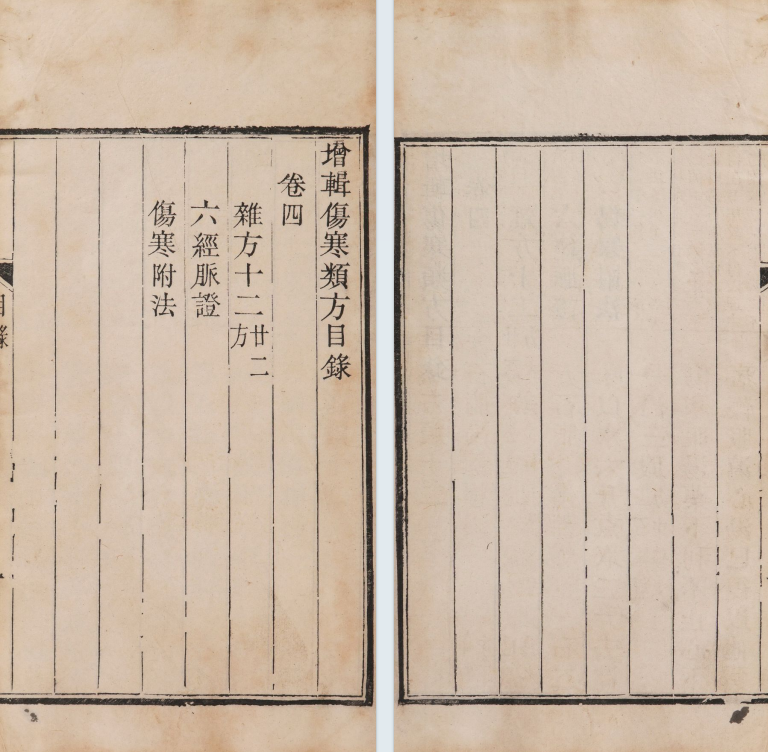 增輯傷寒類方目錄
卷四
雜方十二廿二方
六經脈證
傷寒附法